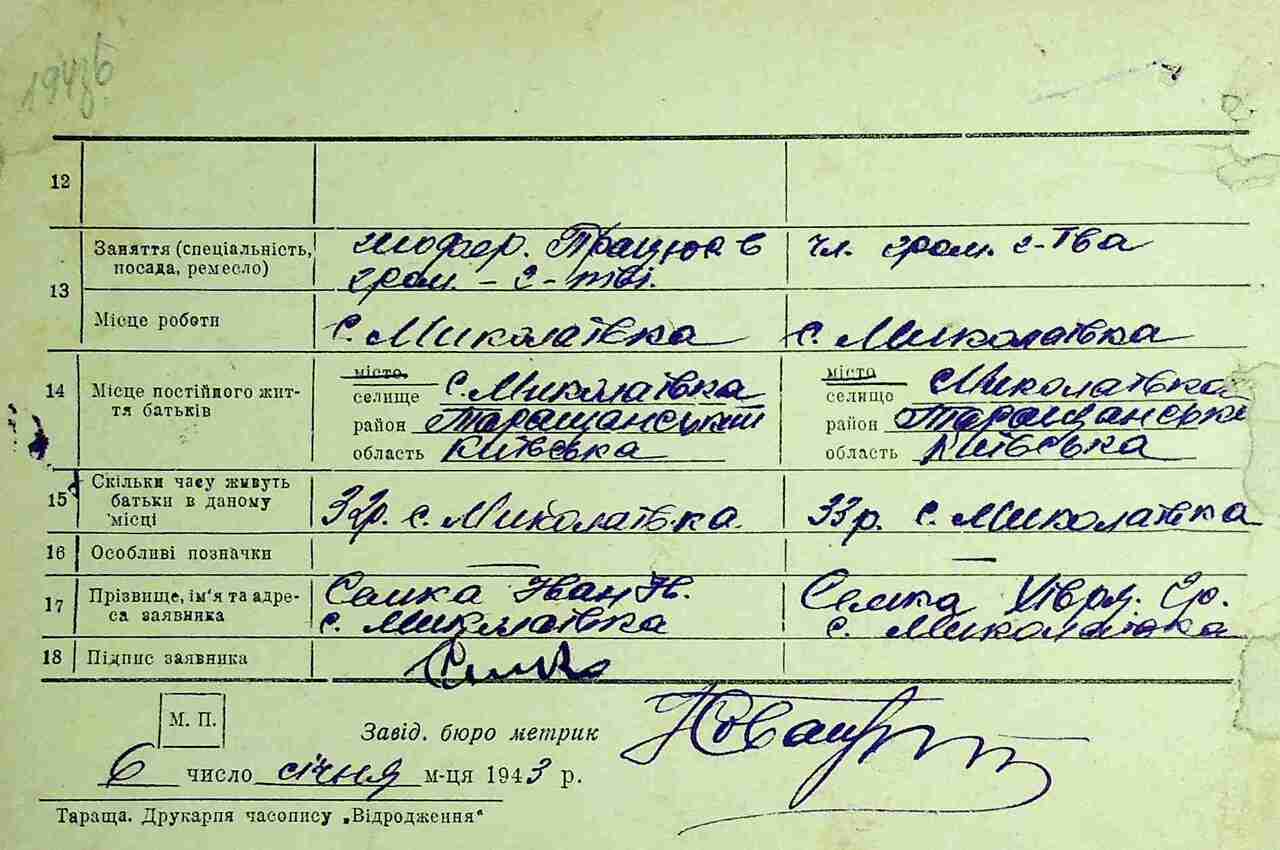 1943 6
12
Заняття (спеціальність, посада, ремесло) шофер. Працює в чл. гром. г-тва
гром. - г-тві.
13
Місце роботи с. Миколаївка с. Миколаївка
14 Місце постійного життя батьків
місто місто
селище с. Миколаївка селищо Миколаївка
район Таращанський район Таращанськ
область Київська область Київська
15 Скільки часу живуть
батьки в даному 32 р. с. Миколаївка. 33 р. с. Миколаївка
місці
16 Особливі позначки — —
17 Прізвище, ім'я та адре- Семка Іван Н. Семка Хівря. Гр.
са заявника с. Миколаївка с. Миколаївка
18 Підпис заявника Семка
М. П.
Завід. бюро метрик
6 число січня м-ця 1943 р.
Тараща. Друкарня часопису „Відродження"